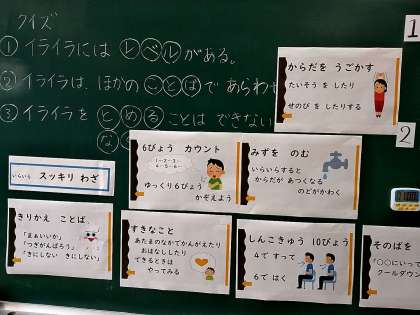 クイズ
① イライラには レベル がある。
② イライラは、ほかの ことば であらわせ
③ イライラを とめる ことは できない
な
1
2
からだを うごかす
たいそう を したり
せのび を したりする
6びょう カウント
1…2…3…
4…5…6…
ゆっくり6びょう
かぞえよう
みずを のむ
いらいらすると
からだが あつくなる
のどがかわく
いらいら スッキリ わざ
きりかえ ことば
「まぁいいか」
「つぎがんばろう」
「きにしない きにしない」
すきなこと
あたまのなかでかんがえたり
おはなししたり
できるときは
やってみる
しんこきゅう 10びょう
4で すって
6で はく
そのばを
「○○にいって
クールダウン